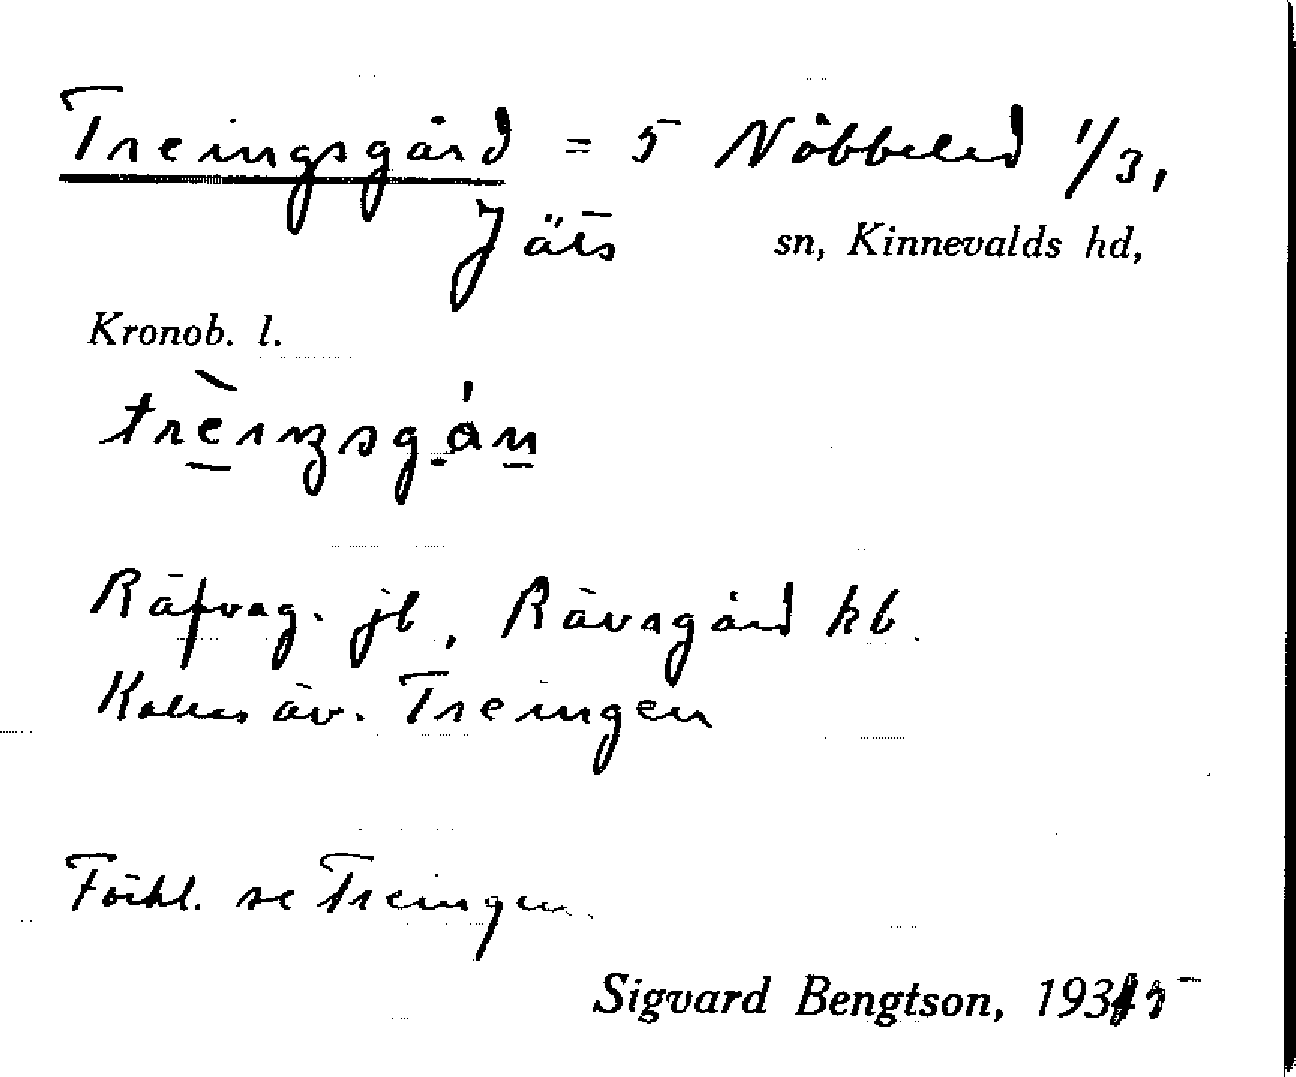 Treingsgård = 5 Nöbbeled 1/3,
Jäts sn, Kinnevalds hd,
Kronob. l.
Räfvag. jb, Rävagård kb.
Kallas äv. Treingen
Förkl. se Treingen.
Sigvard Bengtson, 1935